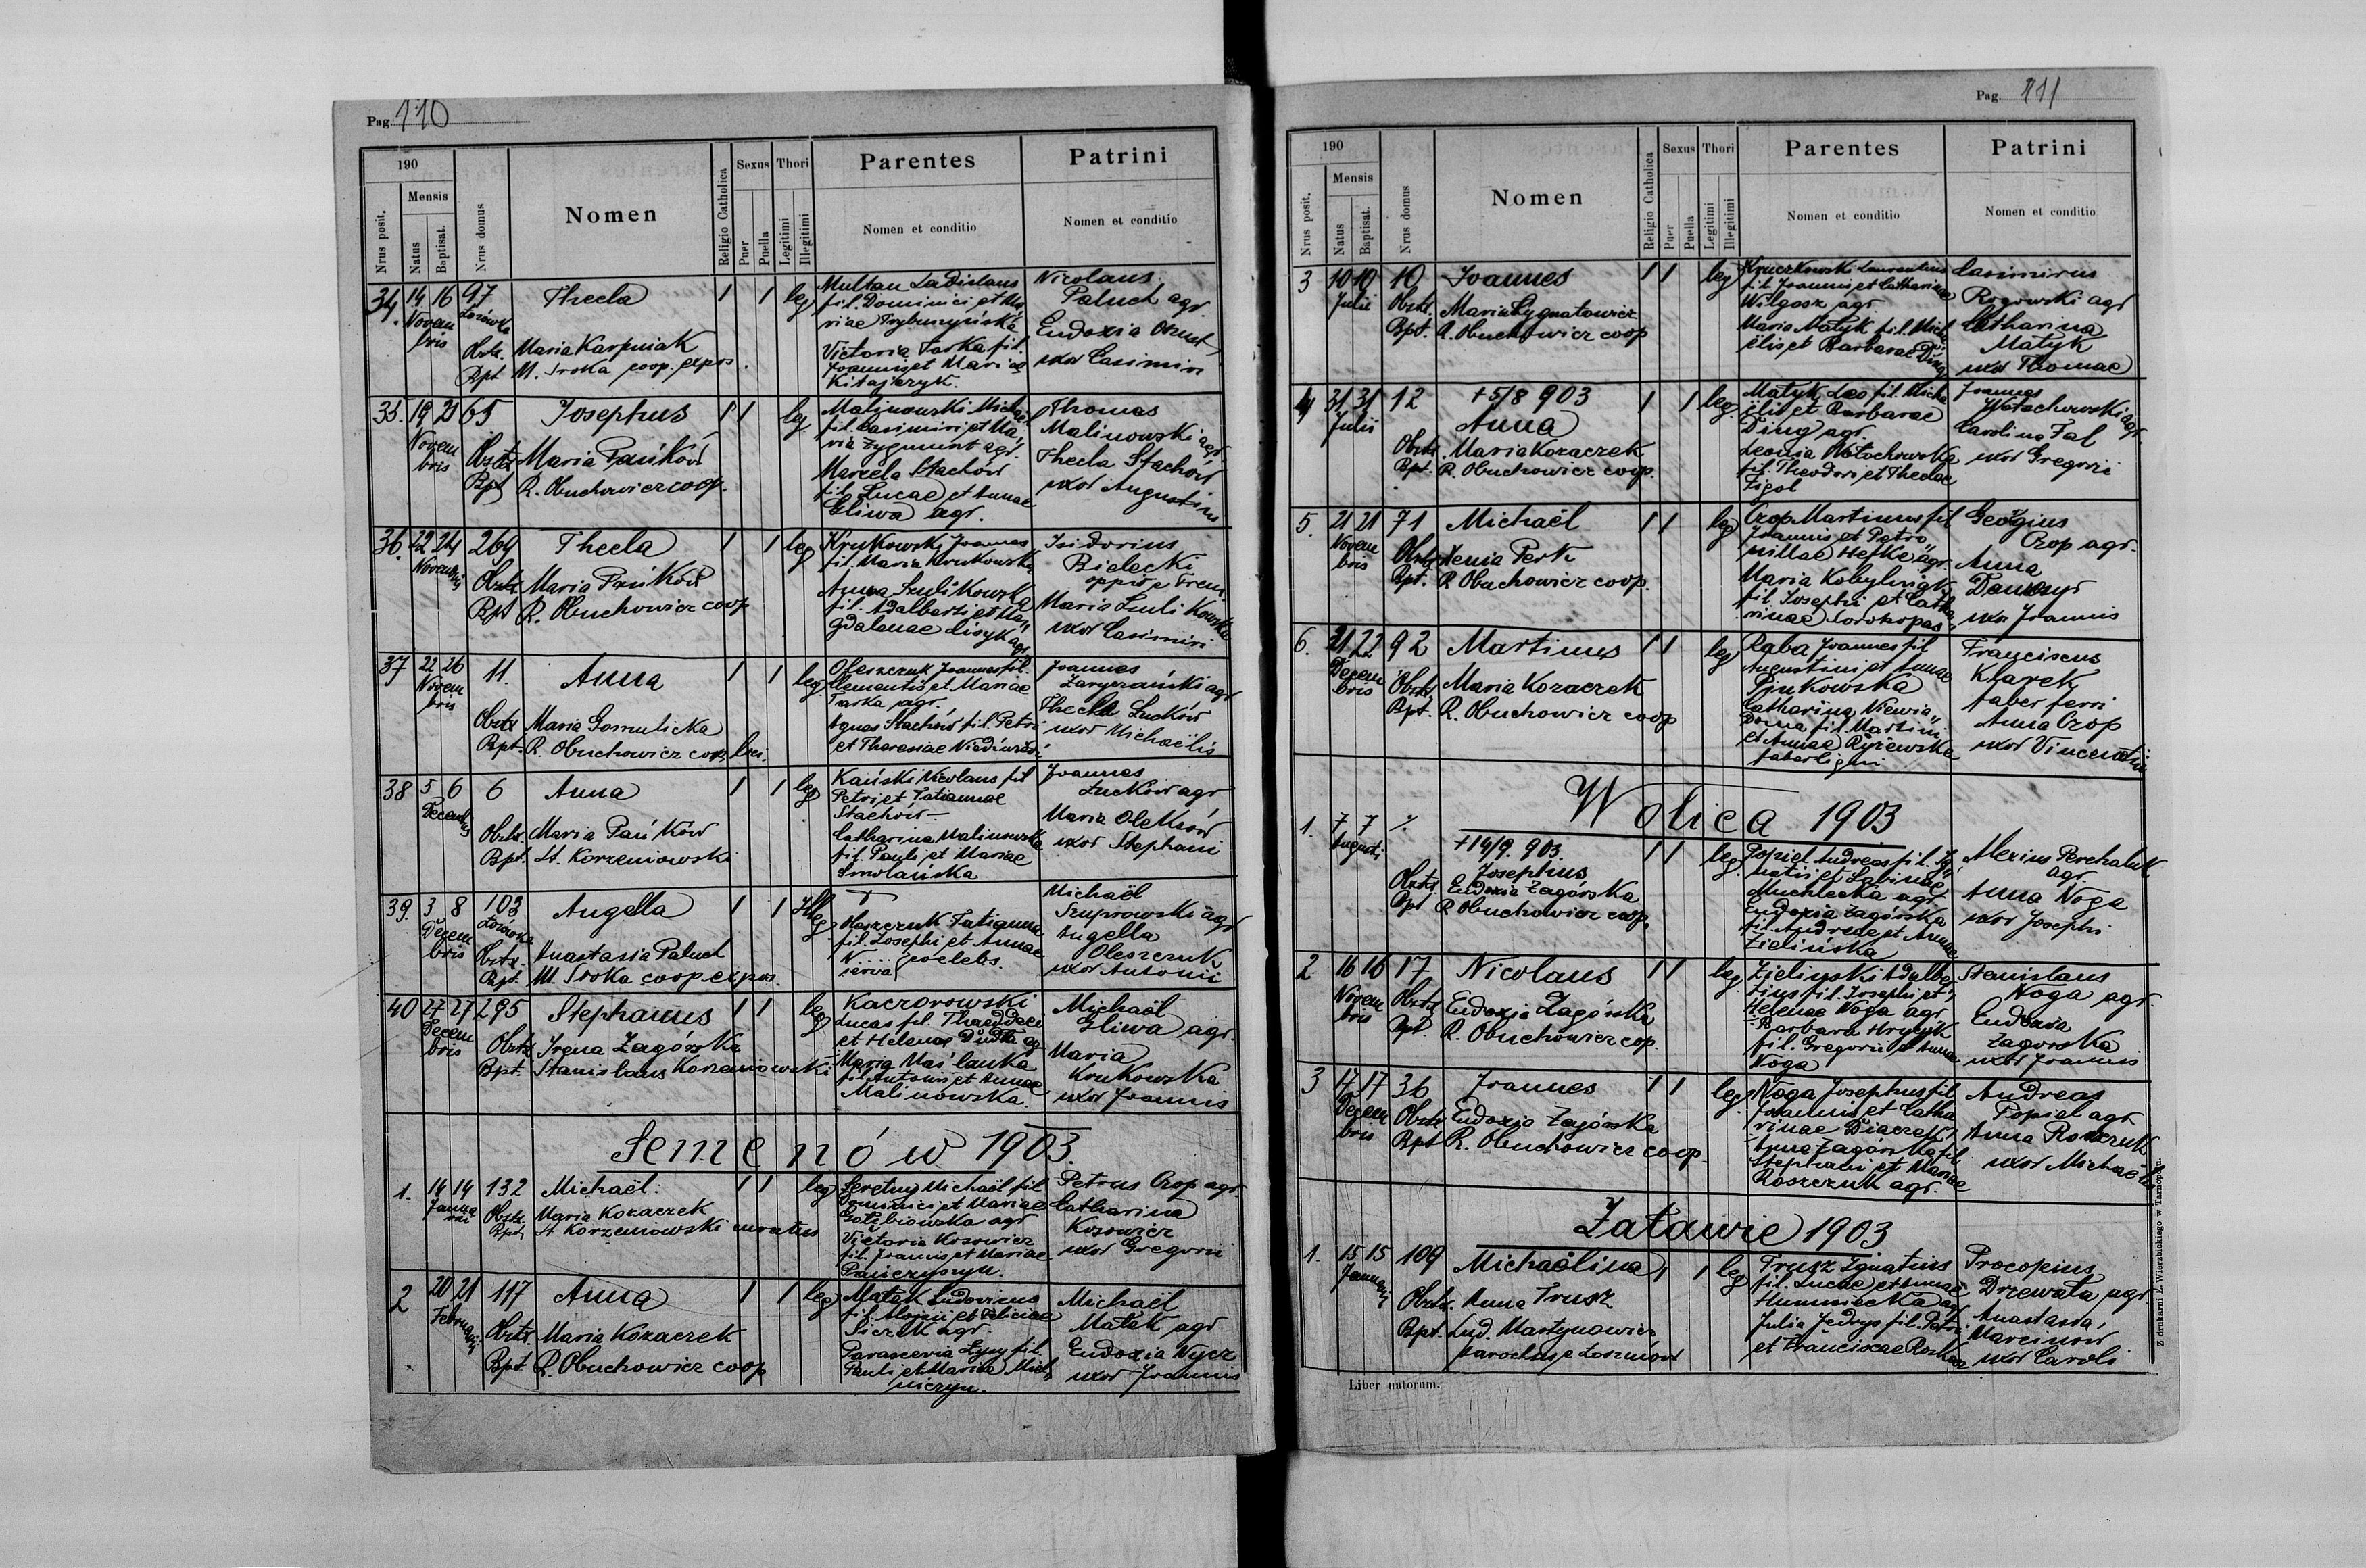 Pag. 110
190
Nrus posit.
Mensis
Natus
Baptisat.
Nrus domus
Nomen
Religio Catholica
Sexus
Puer
Puella
Thori
Legitimi
Illegitimi
Parentes
Nomen et conditio
Patrini
Nomen et conditio
34. 14 16 97 Thecla 1 1 leg
Novembris
Obstr. Maria Karpniak
Bpt M. Sroka coop. expos.
Multan Ladislaus
fil. Dominici et Ma
riae Trybuszyńska
Victoria Jarka fil.
Joannis et Mariae
Kitajczyk.
Nicolaus
Paluch agr.
Eudoxia
uxor Casimiri
35. 19 21 65 Josephus 1 1 leg
Novembris
Obstr Maria Pańków
Bpt R. Obuchowicz coop.
Malinowski Michaël
fil. Casimiri et Ma„
ria Zygmunt agr.
Marcela Stachów
fil. Lucae et Annae
Gliwa agr.
Thomas
Malinowski agr
Thecla Stachów
uxor Augustini
36. 22 24 264 Thecla 1 1 leg
Novembris
Obstr Maria Pańków
Bpt R. Obuchowicz coop
Krukowski Joannes
fil. Maria Krukowska
Anna Szulikowska
fil. Adalberti et Ma„
gdalenae Lisyk agr.
Isidorius
Bielecki
Maria Szulikowska
uxor Casimiri
37 22 26 11. Anna 1 1 leg
Novembris
Obstr Maria Gomulicka
Bpt. R. Obuchowicz coop. loci.
Oleszczuk Joannes fil.
Clementis et Mariae
Jarka agr.
Agnes Stachów fil. Petri
et Theresiae
Joannes
Zaryczański agr
Thecla Lucków
uxor Michaëlis
38 5 6 6 Anna 1 1 leg
Decembris
Obstr Maria Pańków
Bpt. St. Korzeniowski
Kański Nicolaus fil
Petri et Tatiannae
Stachów
Catharina Malinowska
fil. Pauli et Mariae
Smolańska
Joannes
Luckow agr
Maria Oleksów
uxor Stephani
39. 3 8 103 Angella 1 1 Illeg
Decembris
Obstr. Anastasia Paluch
Bpt. M. Sroka coop. expos.
Haszczuk Tatianna
fil. Josephi et Annae
coelebs.
Michaël
Szuprowski agr
Angella
Oleszczuk
uxor Antonii
40 27 27 295 Stephanus 1 1 leg
Decembris
Obstr Irena Zagórska
Bpt. Stanislaus Korzeniowski
Kaczorowski
Lucas fil. Thaeddaei
et Helenae Dudka agr
Maria Maślanka
fil. Antonii et Annae
Malinowska.
Michaël
Gliwa agr.
Maria
Krukowska
uxor Joannis
Semenów 1903.
1. 14 14 132 Michaël. 1 1 leg
Januarii
Obstr. Maria Kozaczek
Bpt. St Korzeniowski curatus
Seretny Michaël fil
Dominici et Mariae
Gołębiowska agr
Victoria Kosowicz
fil. Joannis et Mariae
Pańczyszyn.
Petrus Czop agr.
Catharina
Kosowicz
uxor Gregorii
2 20 21 117 Anna 1 1 leg
Februarii
Obstr. Maria Kozaczek
Bpt R. Obuchowicz coop
Matak Ludovicus
fil. Aloisii et Feliciae
agr.
Parascevia Łysy fil.
Pauli et Mariae Mich„
niczyn.
Michaël
Matak agr
Eudoxia Wycz
uxor Joannis
Pag. 111
190
Nrus posit.
Mensis
Natus
Baptisat.
Nrus domus
Nomen
Religio Catholica
Sexus
Puer
Puella
Thori
Legitimi
Illegitimi
Parentes
Nomen et conditio
Patrini
Nomen et conditio
3 10 10 10 Joannes 1 1 leg
Julii
Obstr. Maria Lygnatowicz
Bpt. R. Obuchowicz coop
Kruczkowski Laurentius
fil. Joannis et Catharinae
Wilgosz agr
Maria Matyk fil. Micha
ëlis et Barbarae Ding
Casimirus
Rogowski agr
Catharina
Matyk
uxor Thomae
4 31 31 12 +5/8 903 1 1 leg.
Julii
Anna
Obstr. Maria Kozaczek
Bpt. R. Obuchowicz coop.
Matyk Leo fil. Micha
ëlis et Barbarae
Ding agr.
Leonia Wołochowska
fil. Theodori et Theclae
Figol
Joannes
Wołochowski agr
Carolina Fal
uxor Gregorii
5. 21 21 71 Michaël 1 1 leg
Novembris
Obstr Xenia Perk
Bpt. R Obuchowicz coop.
Czop Martinus fil
Joannis et Petro
nillae Hefke agr.
Maria Kobylniak
fil. Josephi et Catha
rinae Sorokopas
Georgius
Czop agr.
Anna
uxor Joannis
6. 21 22 92 Martinus 1 1 leg
Decembris
Obstr. Maria Kozaczek
Bpt. R. Obuchowicz coop
Raba Joannes fil
Augustini et Annae
Pinkowska
Catharina Niewia„
Doma fil. Martini
et Annae Ryżewska
faber ligni
Franciscus
Klarek
faber ferri
Anna Czop
uxor Vincentii
Wolica 1903
1. 7 7 % +14/9. 903. 1 1 leg
Augusti
Josephus
Obstr. Eudoxia Zagórska
Bpt R Obuchowicz coop.
Popiel Andreas fil. Ig„
natii et Sabinae
Muchlecka agr
Eudoxia Zagórska
fil. Andreae et Annae
Zielińska
Alexius Perchaluk
agr.
Anna Noga
uxor Josephi
2. 16 16 17 Nicolaus 1 1 leg
Novembris
Obstr Eudoxia Zagórska
Bpt. R. Obuchowicz cop.
Zielinski Adalber
tius fil. Josephi et
Helenae Noga agr
Barbara Hryńyk
fil. Gregorii et Annae
Noga
Stanislaus
Noga agr.
Eudoxia
Zagorska
uxor Joannis
3 17 17 36 Joannes 1 1 leg
Decembris
Obstr Eudoxia Zagórska
Bpt R. Obuchowicz coop.
Noga Josephus fil
Joannis et Catha
rinae Diaczek
Anna Zagórska fil
Stephani et Mariae
Roszczuk agr.
Andreas
Popiel agr
Anna Roszczuk
uxor Michaëlis
Załawie 1903
1. 15 15 109 Michaëlina 1 1 leg
Januarii
Obstr. Anna Trusz
Bpt. Lud. Martynowicz
parochus e Łoszniów
Trusz Ignatius
fil. Lucae et Annae
Humniecka agr
Julia Jedrys fil. Petri
et Franciscae
Procopius
Drzewata agr
Anastasia
Marcinów
uxor Caroli
Liber natorum.
Z drukarni L. Wierzbickiego w Tarnopolu.